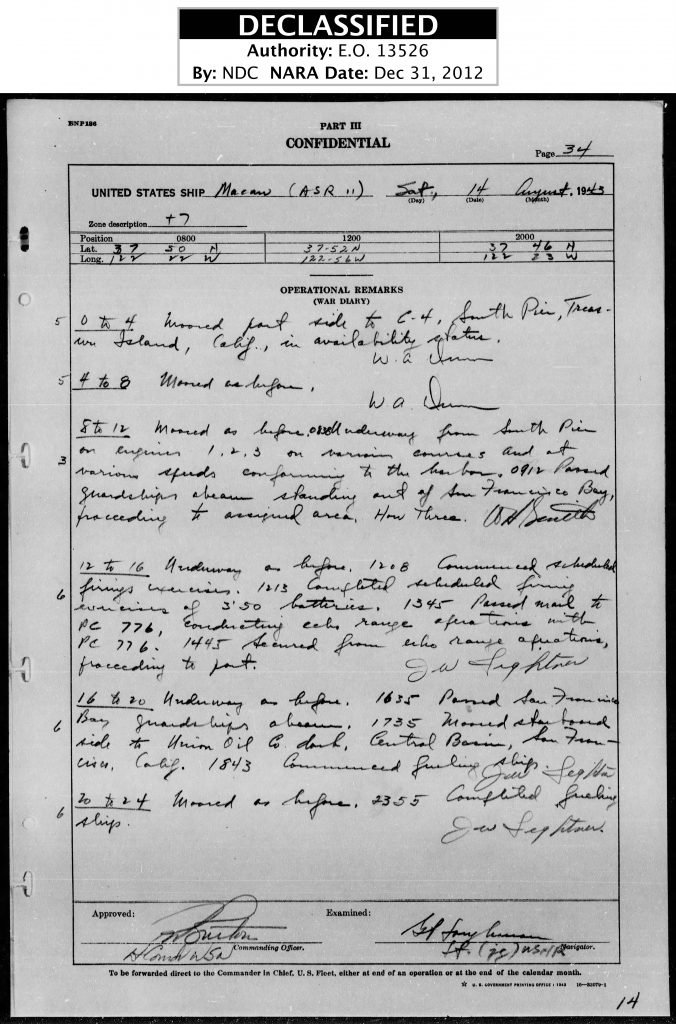 DECLASSIFIED
Authority: E.O. 13526
By: NDC NARA Date: Dec 31, 2012
BNP186
PART III
CONFIDENTIAL
Page 34
UNITED STATES SHIP Macaw (ASR 11) Sat, 14 August, 1943
(Day) (Date) (Month)
Zone description +7
Position 0800 1200 2000
Lat. 37 50 N 37-52N 37 46 N
Long. 122 22 W 122-56W 122 23 W
OPERATIONAL REMARKS
(WAR DIARY)
5 0 to 4 Moored port side to C-4, South Pier, Treas-
ure Island, Calif., in availability status.
W. A. Dunn
5 4 to 8 Moored as before.
W. A. Dunn
8 to 12 Moored as before. 0838 Underway from South Pier
on engines 1, 2, 3 on various courses and at
3 various speeds conforming to the harbor. 0912 Passed
guardships abeam standing out of San Francisco Bay,
proceeding to assigned area, How Three.
12 to 16 Underway as before. 1208 Commenced scheduled
firings exercises. 1213 Completed scheduled firing
6 exercises of 3"50 batteries. 1345 Passed mail to
PC 776, conducting echo range operations with
PC 776. 1445 Secured from echo range operations,
proceeding to port. J W Lightner
16 to 20 Underway as before. 1635 Passed San Francisco
6 Bay guardships abeam. 1735 Moored starboard
side to Union Oil Co. dock, Central Basin, San Fran-
cisco, Calif. 1843 Commenced fueling ship.
20 to 24 Moored as before. 2355 Completed fueling
6 ship. J W Lightner.
Approved: Examined:
Commanding Officer. Lt. (jg) USNR Navigator.
To be forwarded direct to the Commander in Chief, U. S. Fleet, either at end of an operation or at the end of the calendar month.
☆ U. S. GOVERNMENT PRINTING OFFICE : 1943
14